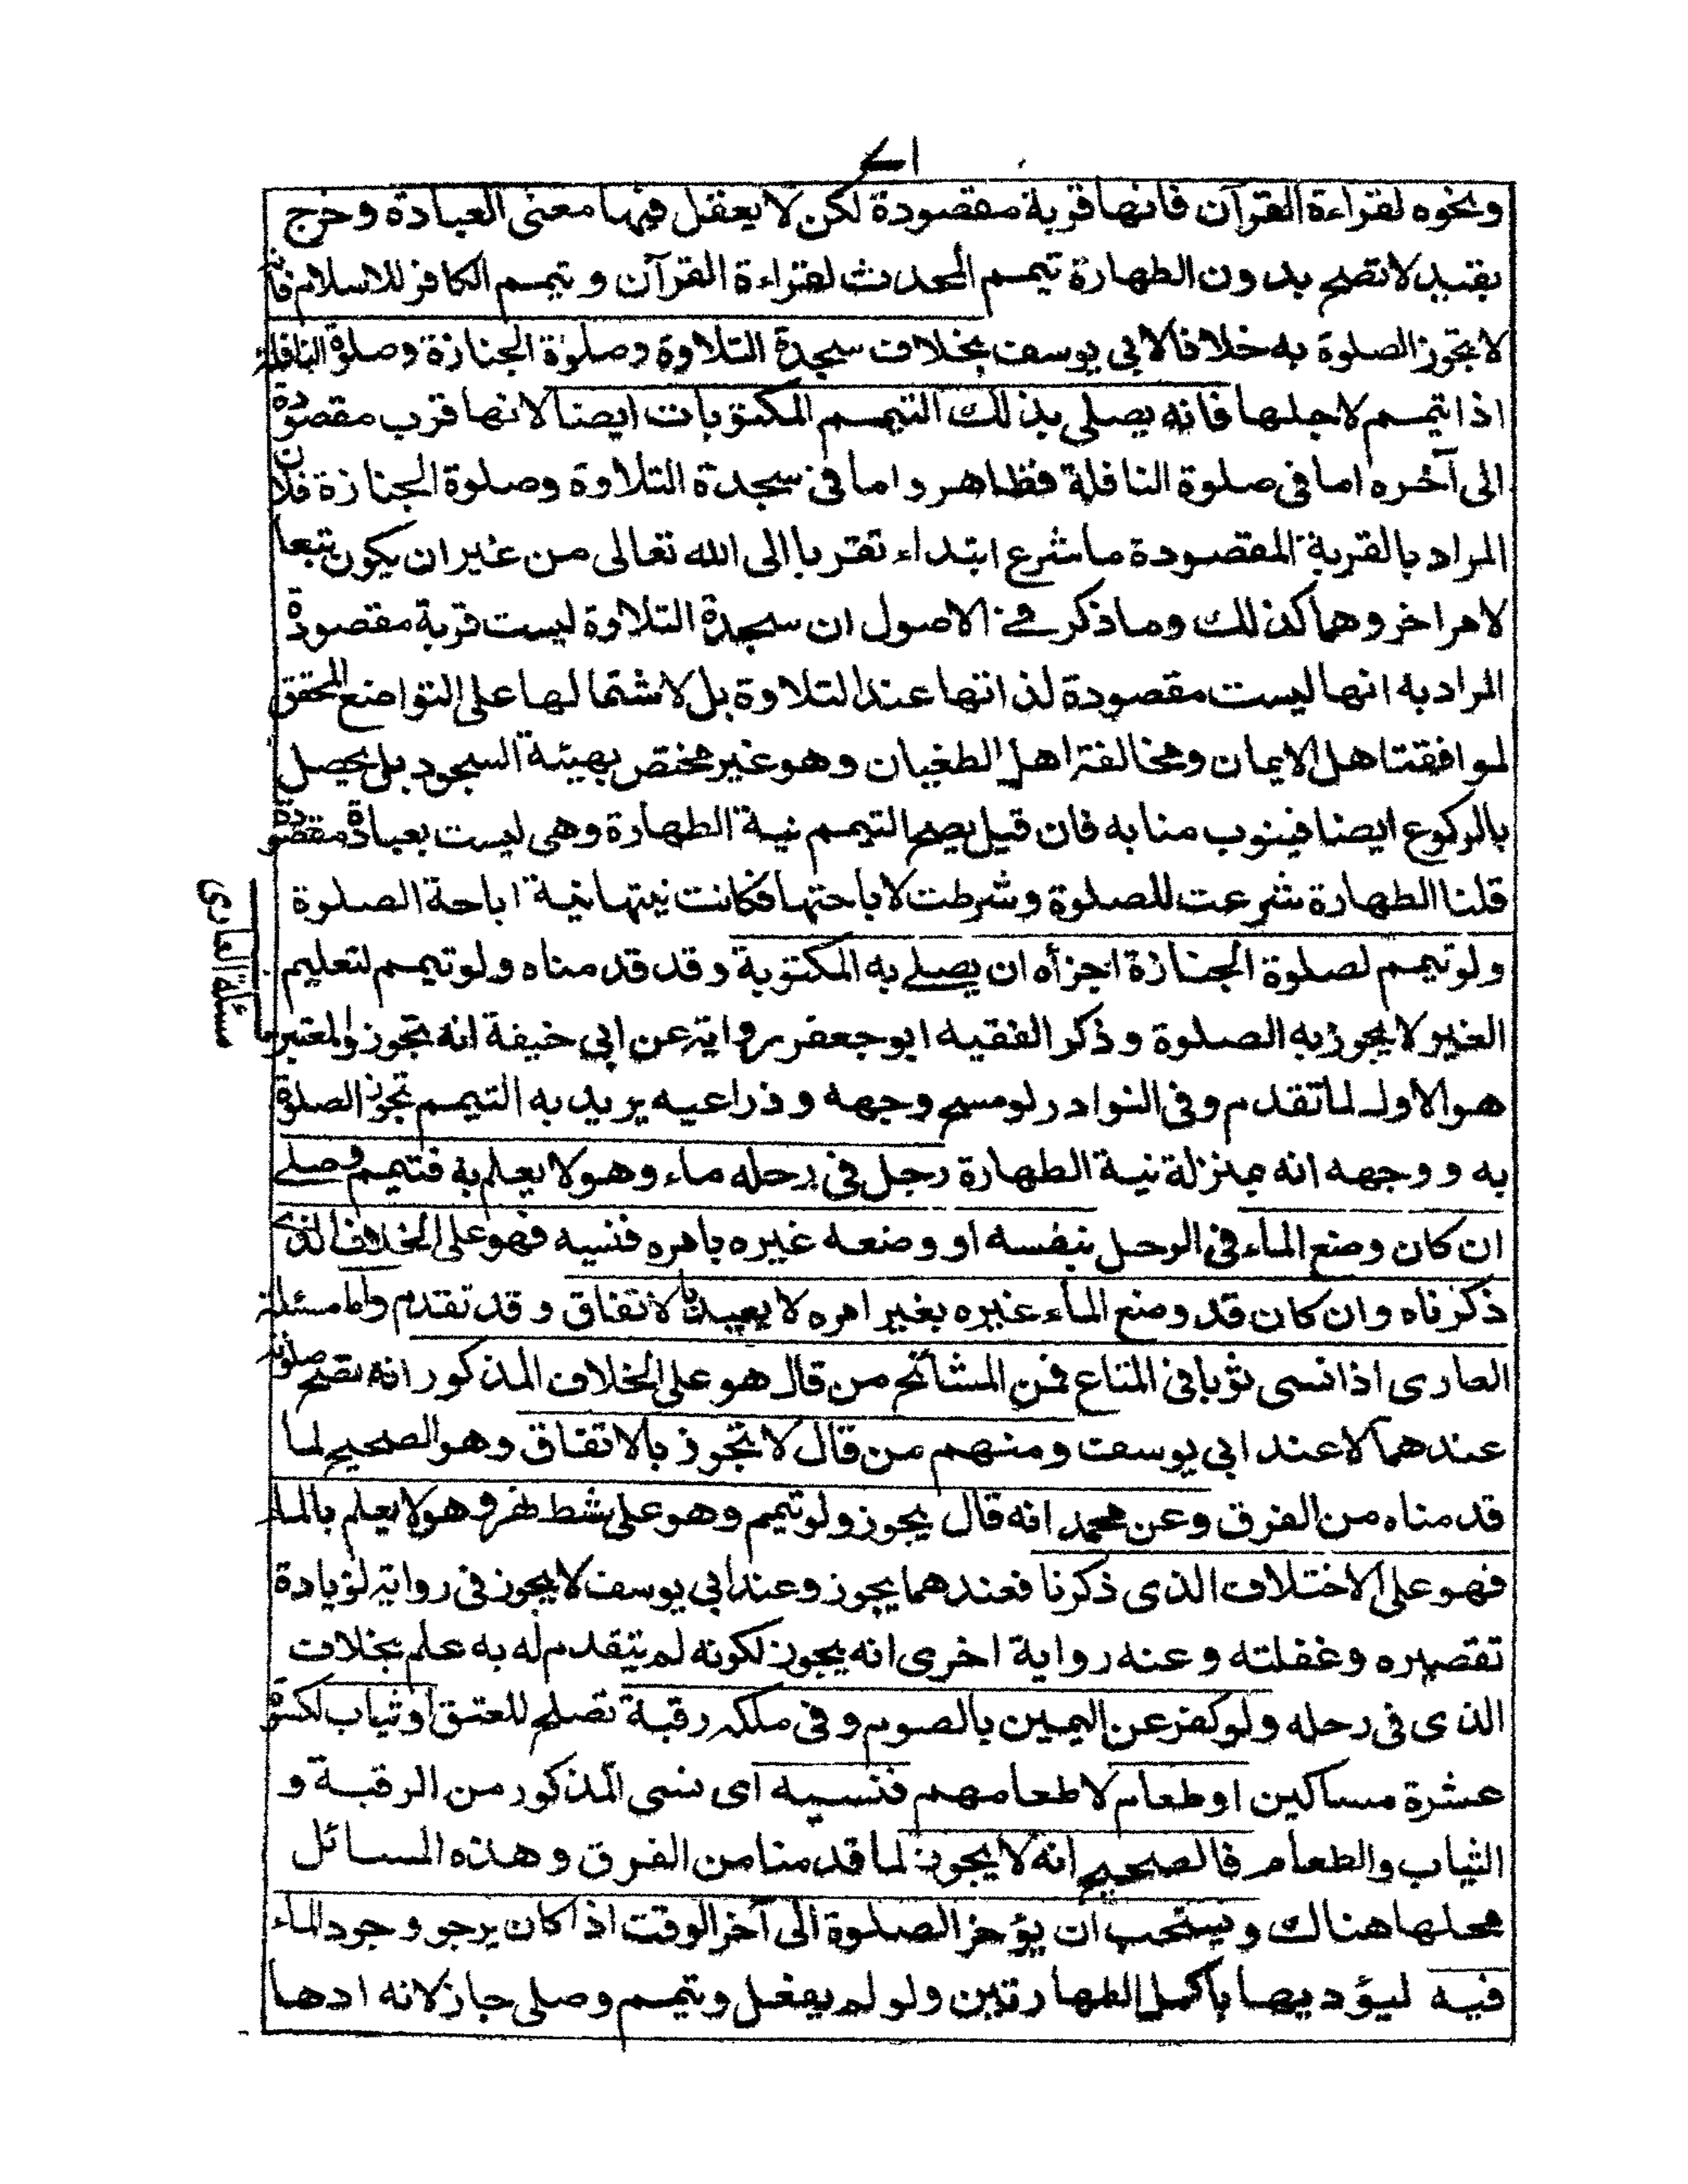 ٧١
ونحوه لقراءة القرآن فانها قربة مقصودة لكن لا يعقل فيها معنى العبادة وخرج
بقيد لا تصح بدون الطهارة تيمم المحدث لقراءة القرآن وتيمم الكافر للاسلام فانه
لا يجوز الصلوة به خلافا لابي يوسف بخلاف سجدة التلاوة وصلوة الجنازة وصلوة النافلة
اذا تيمم لاجلها فانه يصلي بذلك التيمم المكتوبات ايضا لانها قرب مقصودة
الى آخره اما في صلوة النافلة فظاهر واما في سجدة التلاوة وصلوة الجنازة فلان
المراد بالقربة المقصودة ما شرع ابتداء تقربا الى الله تعالى من غير ان يكون تبعا
لامر اخر وهما كذلك وما ذكر في الاصول ان سجدة التلاوة ليست قربة مقصودة
المراد به انها ليست مقصودة لذاتها عند التلاوة بل لاشتمالها على التواضع المحقق
لموافقة اهل الايمان ومخالفة اهل الطغيان وهو غير مختص بهيئة السجود بل يحصل
بالركوع ايضا فينوب منابه فان قيل يصح التيمم نية الطهارة وهي ليست بعبادة مقصودة
قلنا الطهارة شرعت للصلوة وشرطت لاباحتها فكانت نيتها نية اباحة الصلوة
ولو تيمم لصلوة الجنازة اجزأه ان يصلي به المكتوبة وقد قدمناه ولو تيمم لتعليم
الغير لا يجوز به الصلوة وذكر الفقيه ابو جعفر رواية عن ابي حنيفة انه تجوز والمعتبر
هو الاول لما تقدم وفي النوادر لو مسح وجهه وذراعيه يريد به التيمم تجوز الصلوة
به ووجهه انه بمنزلة نية الطهارة رجل في رحله ماء وهو لا يعلم به فتيمم وصلى
ان كان وضع الماء في الرحل بنفسه او وضعه غيره بامره فنسيه فهو على الخلاف الذي
ذكرناه وان كان قد وضع الماء غيره بغير امره لا يعيد بالاتفاق وقد تقدم واما مسئلة
العارى اذا نسى ثوبا في المتاع فمن المشائخ من قال هو على الخلاف المذكور انه تصح صلوته
عندهما لا عند ابي يوسف ومنهم من قال لا تجوز بالاتفاق وهو الصحيح لما
قدمناه من الفرق وعن محمد انه قال يجوز ولو تيمم وهو على شط نهر وهو لا يعلم بالماء
فهو على الاختلاف الذى ذكرنا فعندهما يجوز وعند ابي يوسف لا يجوز في رواية لزيادة
تقصيره وغفلته وعنه رواية اخرى انه يجوز لكونه لم يتقدم له به علم بخلاف
الذى في رحله ولو كفر عن اليمين بالصوم وفي ملكه رقبة تصلح للعتق او ثياب لكسوة
عشرة مساكين او طعام لاطعامهم فنسيه اى نسى المذكور من الرقبة و
الثياب والطعام فالصحيح انه لا يجوز لما قدمنا من الفرق وهذه المسائل
محلها هناك ويستحب ان يؤخر الصلوة الى آخر الوقت اذا كان يرجو وجود الماء
فيه ليؤديها باكمل الطهارتين ولو لم يفعل وتيمم وصلى جاز لانه ادها
مسئلة العارى